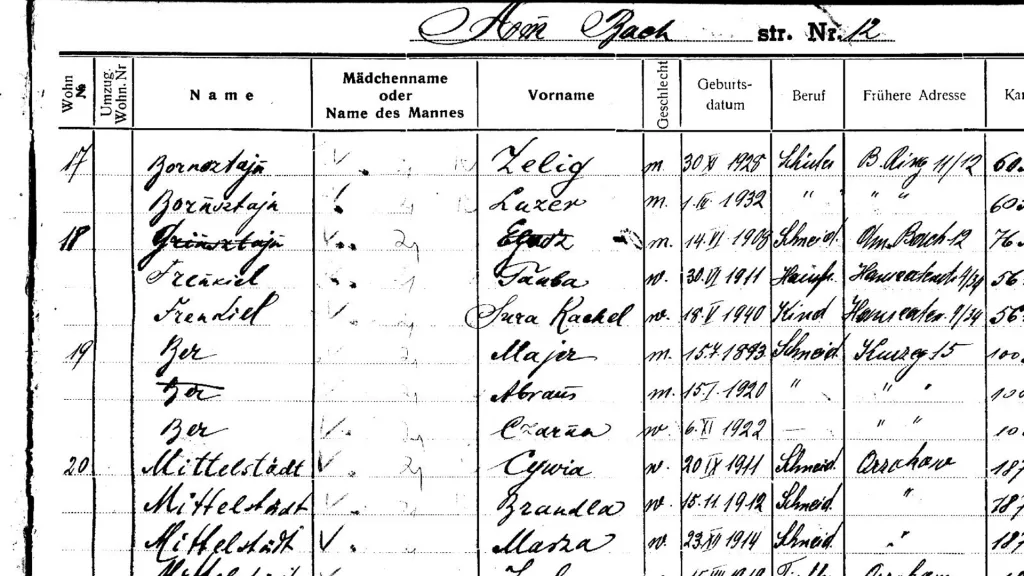 Am Bach str. Nr. 12
Wohn № Umzug. Wohn. Nr Name Mädchenname oder Name des Mannes Vorname Geschlecht Geburts-datum Beruf Frühere Adresse Kar
17 Bornsztajn Zelig m. 30 XI 1928 B. Ring 11/12 60
Bornsztajn Luzer m. 1. 1932 " " " 60
18 Grünsztajn m. 14 VI 1908 Schneid. Am. Bach 12 76
Frenkiel w. 30. VI 1911 Hausfr. 9/34 56
Frenkiel Sura Rachel w. 18. V 1940 Kind 9/34 56
19 Ber Majer m. 15.7. 1893 Schneid 15 100
Ber Abram m. 15. I. 1920 " " " 10
Ber Czarna w. 6. XI 1922 — " " 10
20 Mittelstädt Cywia w. 20 IX 1911 Schneid. Ozorkow 187
Mittelstädt Brandla w. 15. 11 1912 Schneid " 187
Mittelstädt Masza w. 23 XII 1914 Schneid. " 187